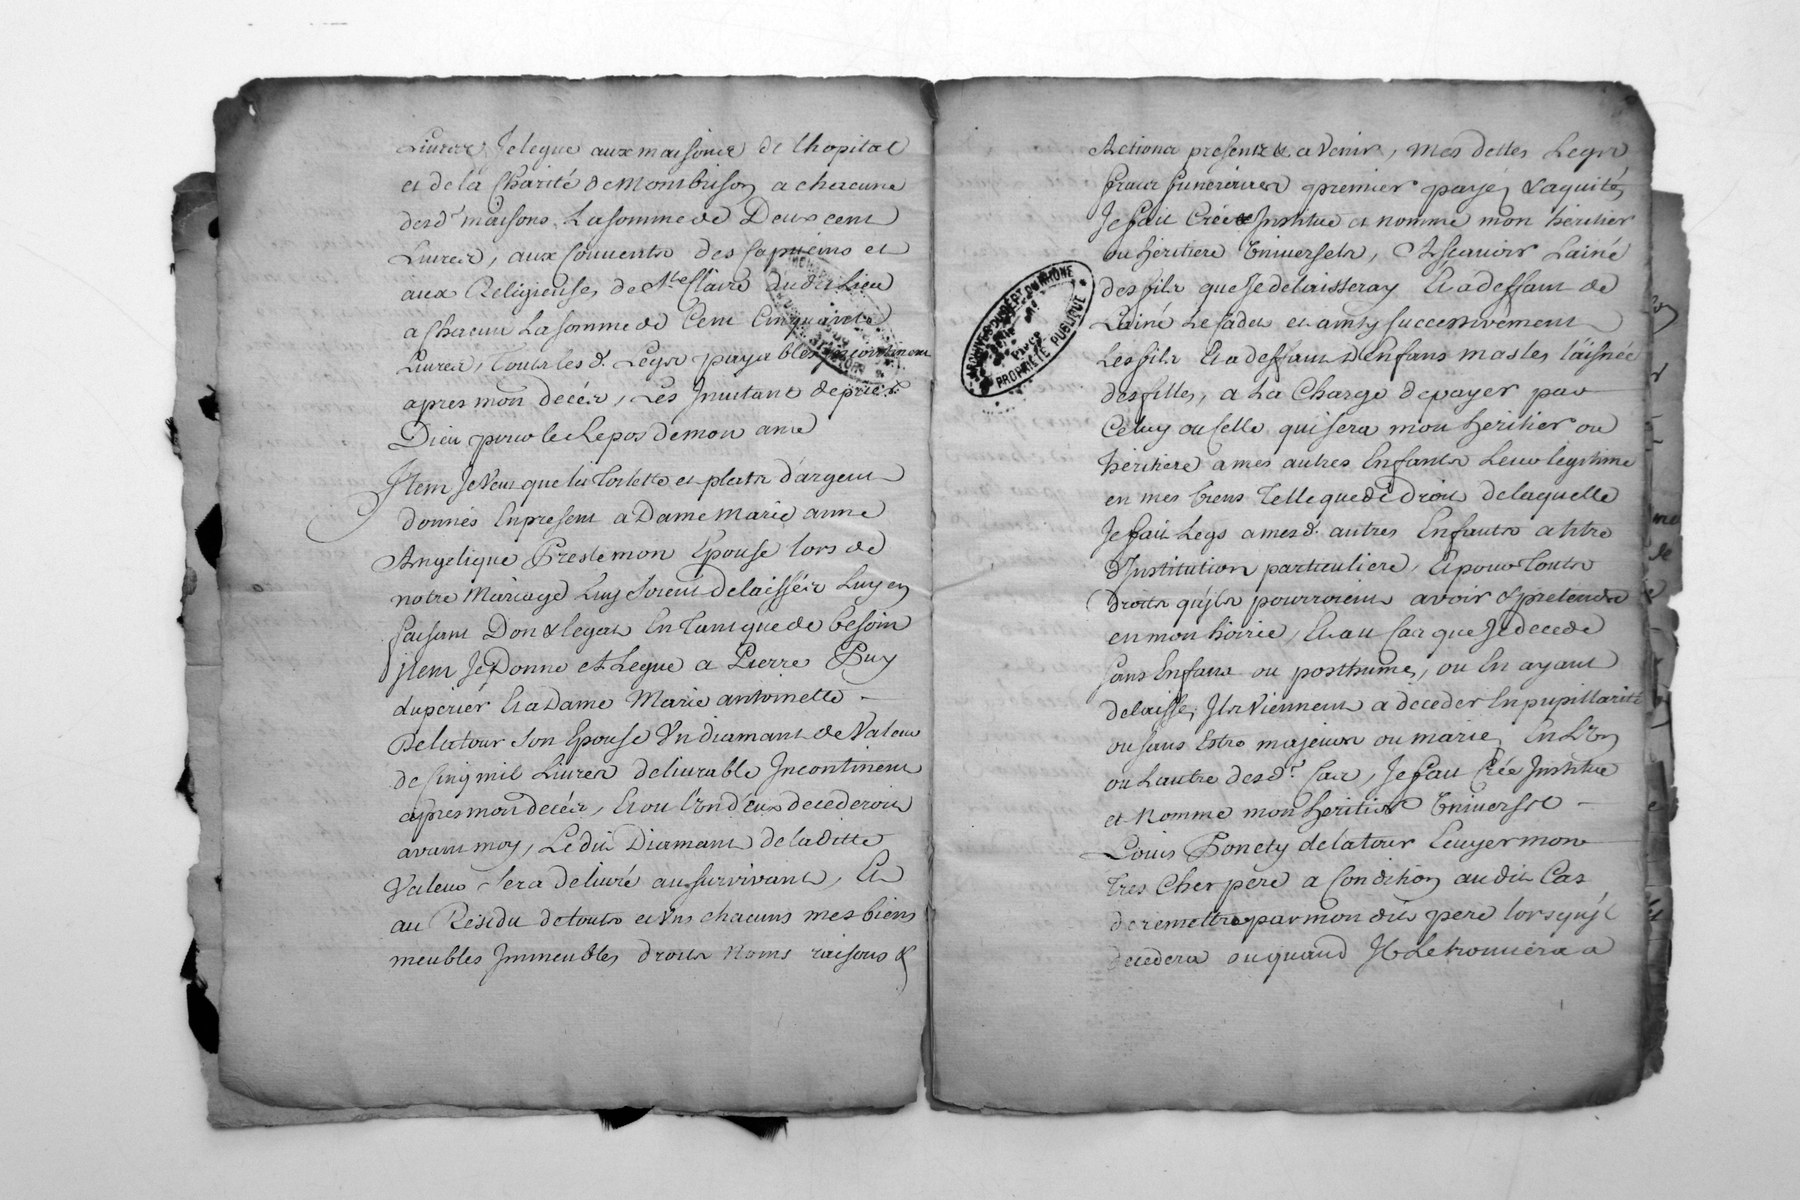 Livres, Je legue aux maisons de lhopital
et de la Charité de Montbrison a chacune
desd.s maisons La somme de Deux cent
Livres, aux Couvents des Capucins et
aux Religieuses de Ste Claire dudit Lieu
a chacun La somme de Cent Cinquante
Livres, touts lesd. Legs payables incontinent
apres mon decés, Les Invitant de prier
Dieu pour le Repos de mon ame
Item Je Veux que la toilette et plats d'argent
donnés En present a Dame Marie anne
Angelique Preste mon Epouse lors de
notre Mariage Luy soient delaissés Luy en
faisant Don & legat En tant que de besoin
item Je Donne et Legue a Pierre Puy
duperier Et a Dame Marie antoinette
Delatour son Epouse Vn diamant de Valeur
de Cinq mil Livres delivrable Incontinent
apres mon decés, Et ou l'on d'eux decederoit
avant moy, Le dit Diamant de la ditte
Valeur sera delivré au survivant, Et
au Residu de touts et Vns chacuns mes biens
meubles Immeubles droits Noms raisons &
Actions presents & a Venir, mes dettes Legs
fraix funeraires premier payés & aquités
Je fait Crée & Institue et nomme mon héritier
ou héritiere Universels, A Scavoir Lainé
des fils que Je delaisseray Et a deffaut de
Lainé Le Cadet et ainsy successivement
Les fils Et a deffaut d'Enfans masles L'aisnée
des filles, a La Charge de payer par
Celuy ou Celle qui sera mon heritier ou
héritiere a mes autres Enfants Leur legitime
en mes biens Telle que de droit de laquelle
Je fait Legs a mesd. autres Enfants a titre
d'Institution particuliere, Et pour Touts
Droits qu'jls pourroient avoir & pretendre
en mon hoirie, Et au Cas que Je decede
sans Enfans ou posthumes, ou En ayant
delaissé, Ils Viennent a deceder En pupillarité
ou sans Estre majeurs ou mariés En L'Un
ou Lautre desd.s Cas, Je fait Crée Institue
et Nomme mon heritier Universel
Louis Poncty delatour Ecuyer mon
tres Cher pere a Condition audit Cas
de remettre par mon dit pere lorsqujl
decedera ou quand Il Le trouvera a
ARCHIVES DU DÉPT DU RHÔNE
PROPRIÉTÉ PUBLIQUE